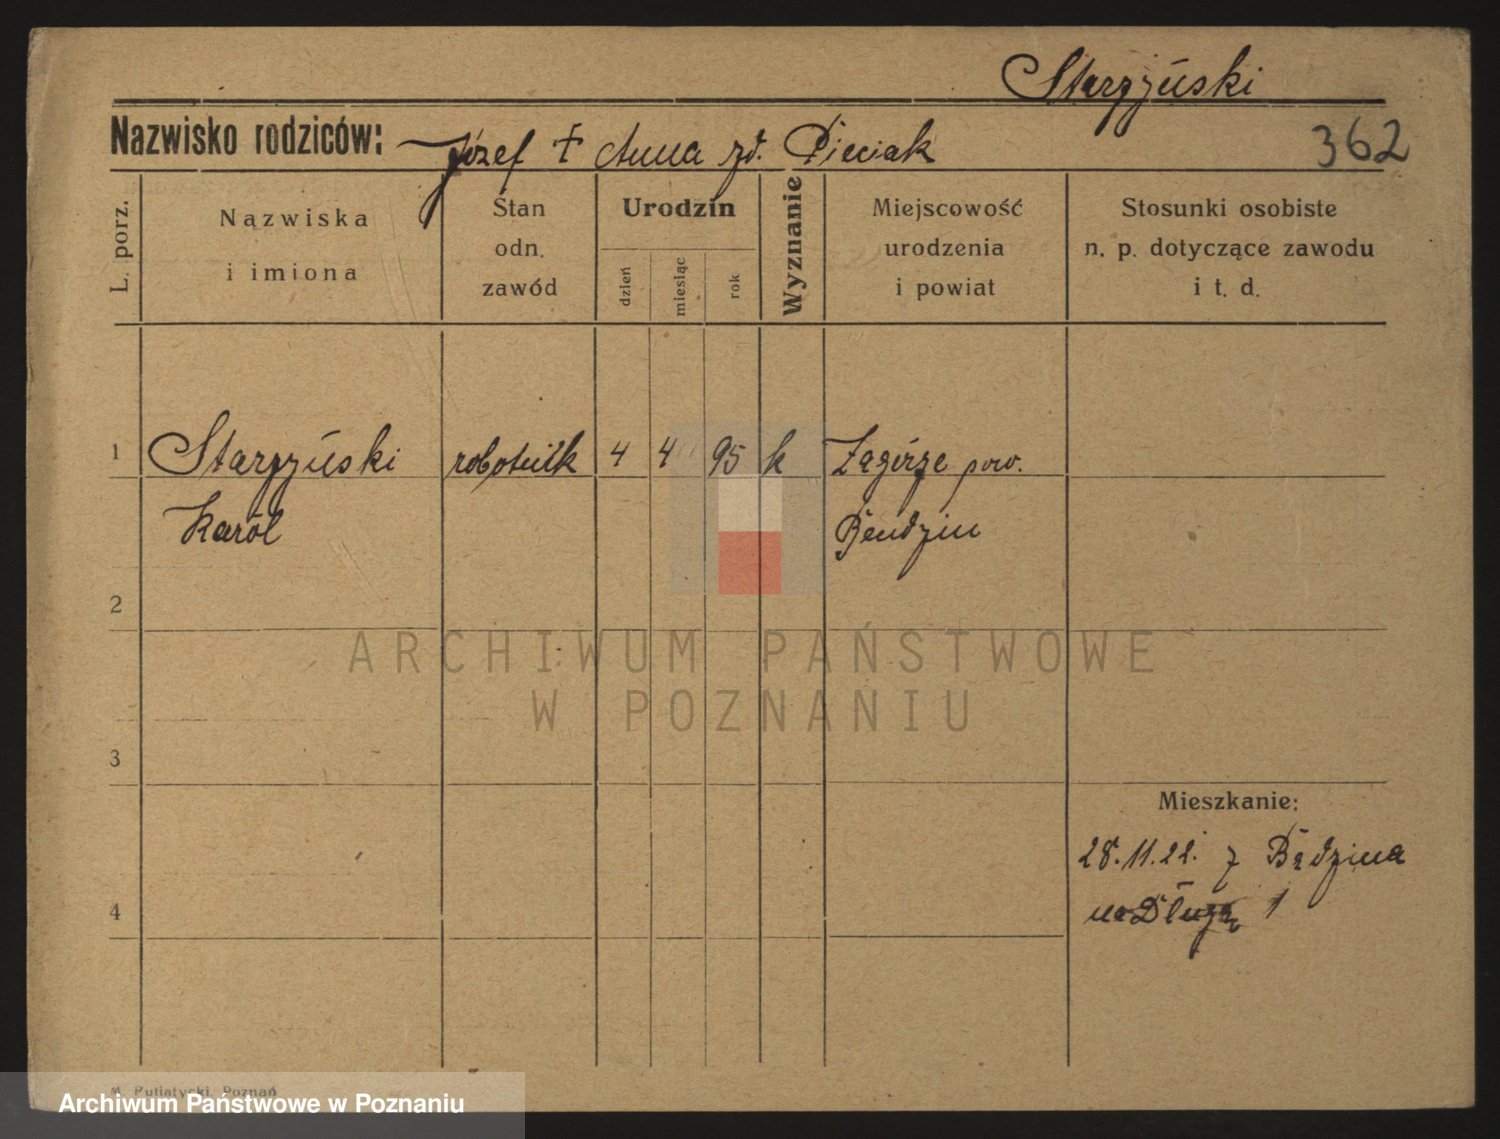 Starzyński
Nazwisko rodziców: Józef † Anna zd. Pieciak
362
L. porz.
Nazwiska
i imiona
Stan
odn.
zawód
Urodzin
dzień
miesiąc
rok
Wyznanie
Miejscowość
urodzenia
i powiat
Stosunki osobiste
n. p. dotyczące zawodu
i t. d.
1 Starzyński robotnik 4 4 95 k Zagórze pow.
Karól Bendzin
2
ARCHIWUM PAŃSTWOWE
W POZNANIU
3
Mieszkanie:
28.11.22. z Bądzina
4 na Długą 1
Putiatycki, Poznań
Archiwum Państwowe w Poznaniu